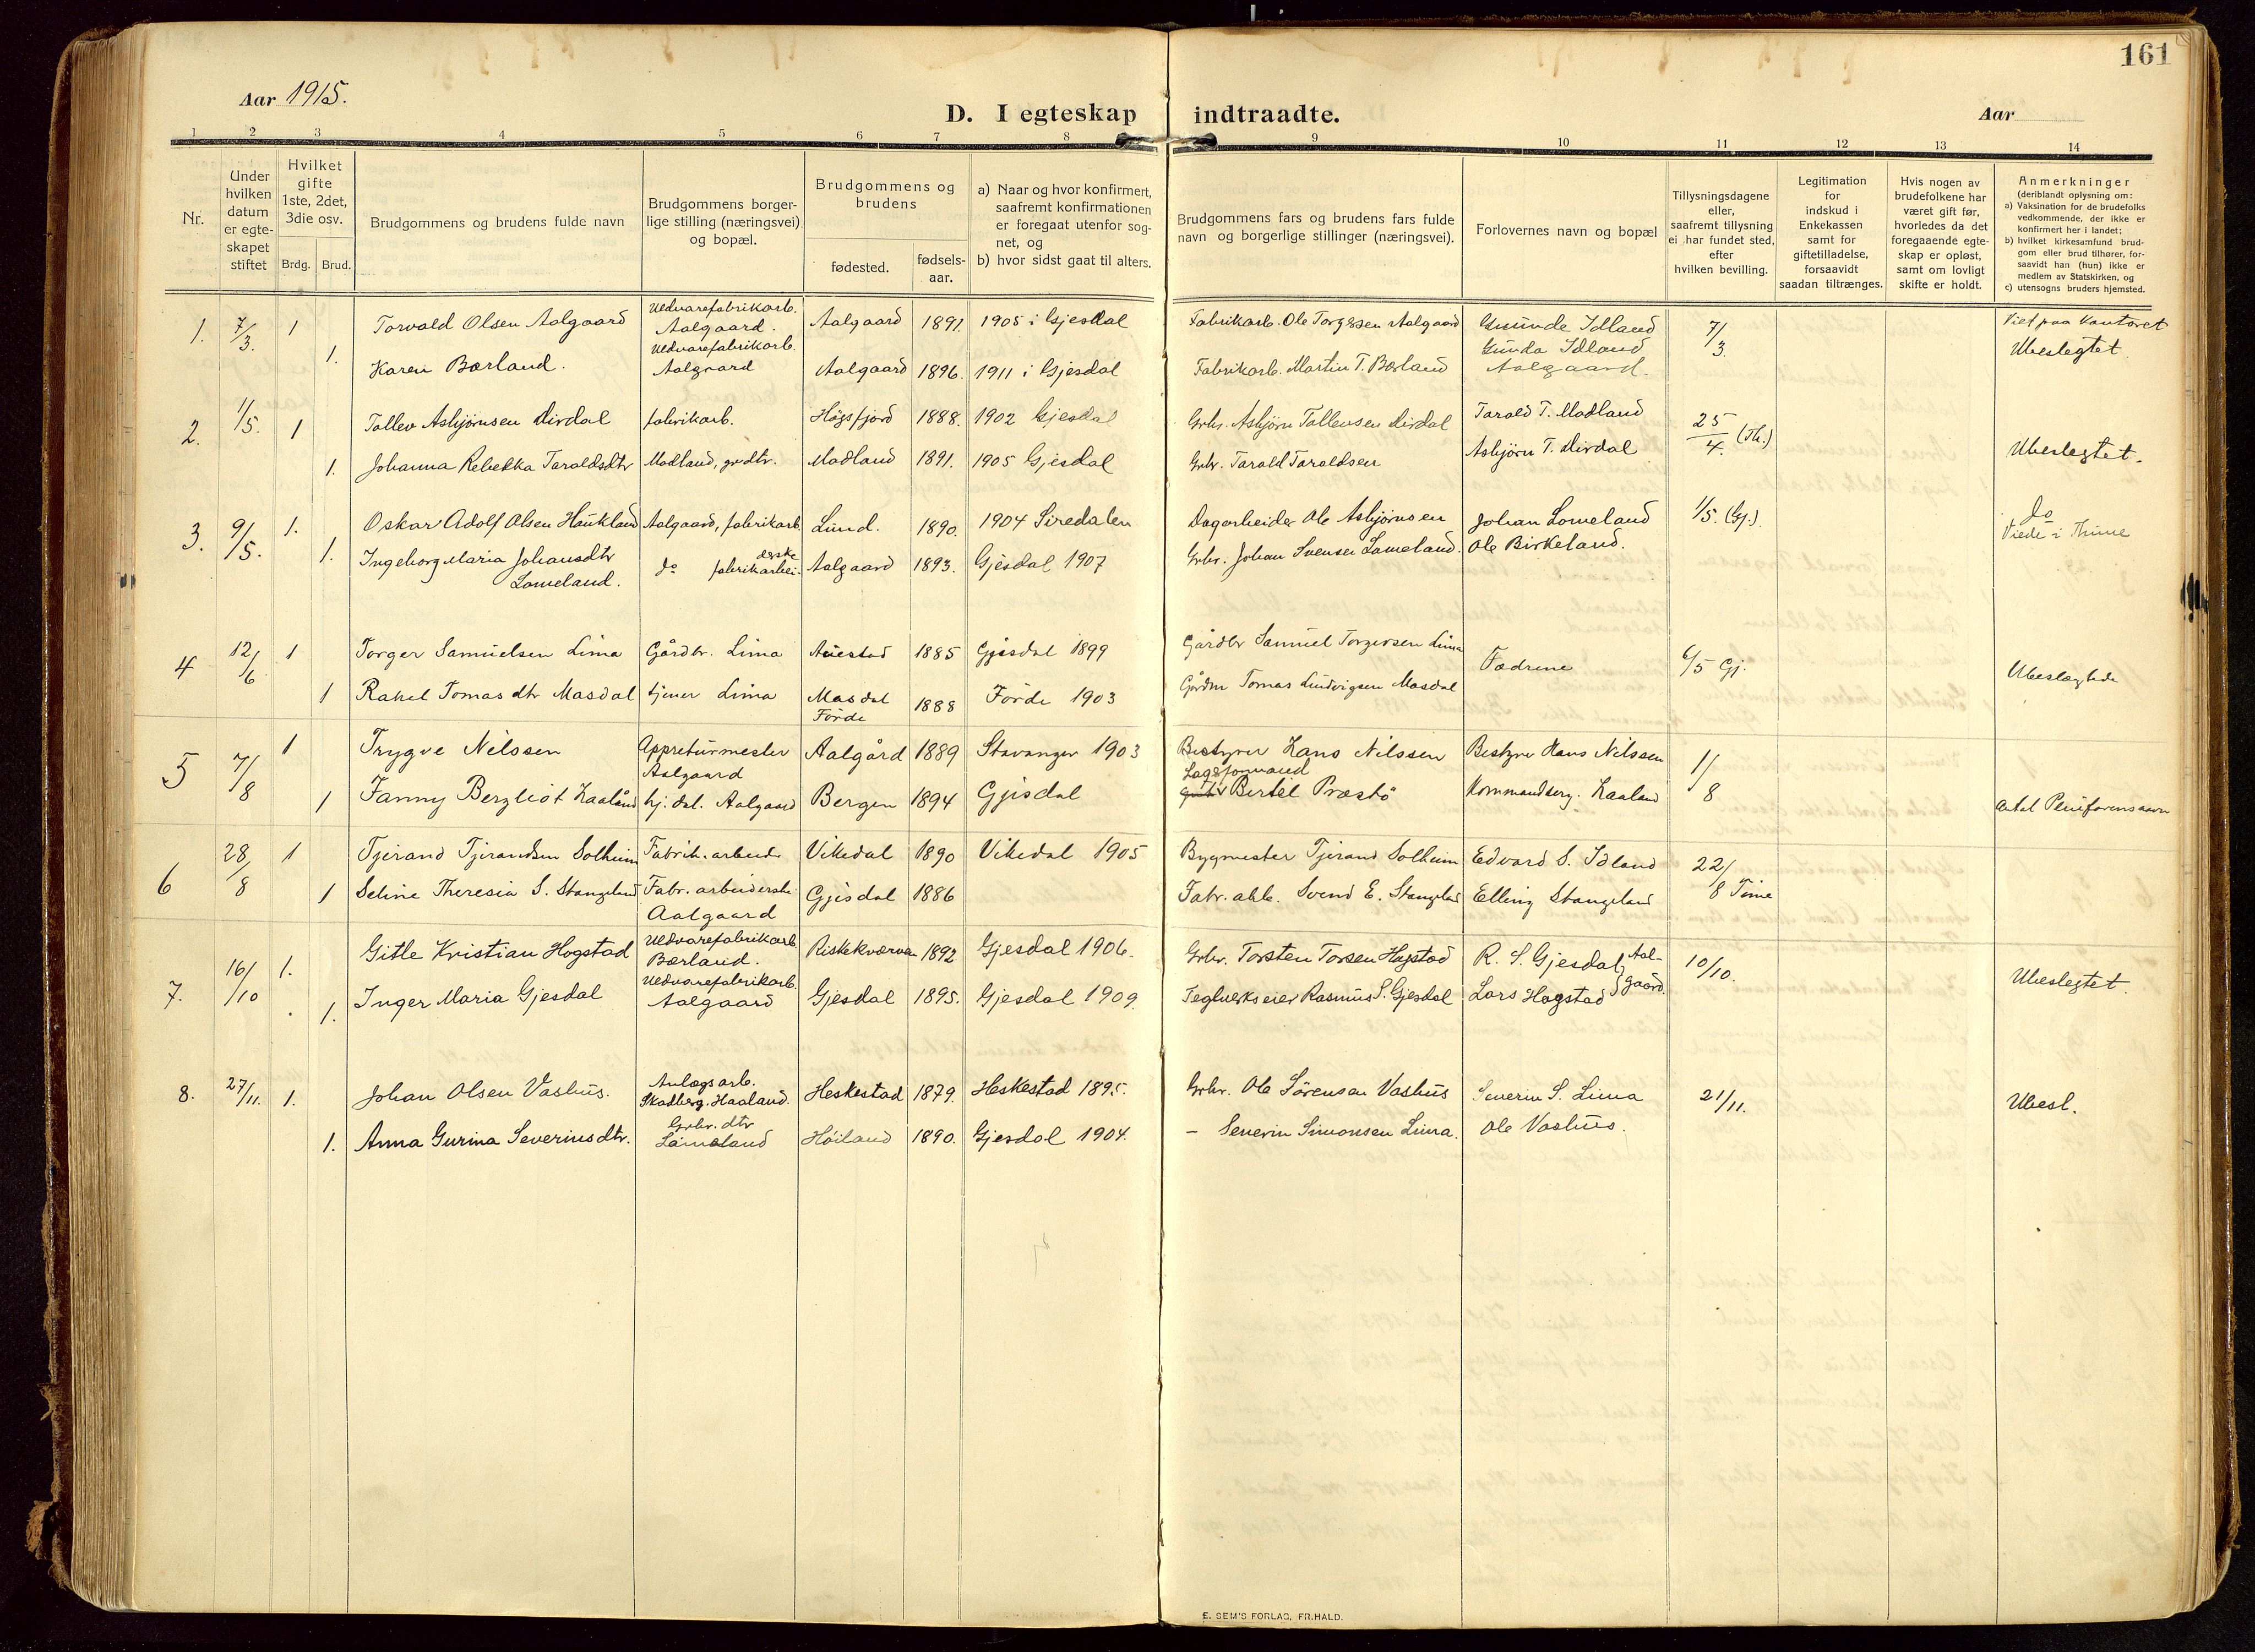 161
Aar 1915.
D. I egteskap indtraadte.
Aar
1 2 3 4 5 6 7 8 9 10 11 12 13 14
Nr.
Under
hvilken
datum
er egte-
skapet
stiftet
Hvilket
gifte
1ste, 2det,
3die osv.
Brdg. Brud.
Brudgommens og brudens fulde navn
Brudgommens borger-
lige stilling (næringsvei)
og bopæl.
Brudgommens og
brudens
fødested.
fødsels-
aar.
a) Naar og hvor konfirmert,
saafremt konfirmationen
er foregaat utenfor sog-
net, og
b) hvor sidst gaat til alters.
Brudgommens fars og brudens fars fulde
navn og borgerlige stillinger (næringsvei).
Forlovernes navn og bopæl
Tillysningsdagene
eller,
saafremt tillysning
ei har fundet sted,
efter
hvilken bevilling.
Legitimation
for
indskud i
Enkekassen
samt for
giftetilladelse,
forsaavidt
saadan tiltrænges.
Hvis nogen av
brudefolkene har
været gift før,
hvorledes da det
foregaaende egte-
skap er opløst,
samt om lovligt
skifte er holdt.
Anmerkninger
(deriblandt oplysning om:
a) Vaksination for de brudefolks
vedkommende, der ikke er
konfirmert her i landet;
b) hvilket kirkesamfund brud-
gom eller brud tilhører, for-
saavidt han (hun) ikke er
medlem av Statskirken, og
c) utensogns bruders hjemsted.
1. 7/3. 1 Torvald Olsen Aalgaard Uldvarefabrikarb. Aalgaard. Aalgaard 1891. 1905 i Gjesdal Fabrikarb. Ole Torgersen Aalgaard Gunde Idland 7/3 Viet paa Kontoret
1. Karen Bærland. Uldvarefabrikarb. Aalgaard Aalgaard 1896. 1911 i Gjesdal Fabrikarb. Martin T. Bærland Gunda Idland Aalgaard. Ubeslegtet.
2. 1/5. 1 Tollev Asbjørnsen Dirdal fabrikarb. Høgsfjord 1888. 1902 Gjesdal Grbr. Asbjørn Tollevsen Dirdal Tarald T. Madland 25/4 (Th.)
1. Johanna Rebekka Taraldsdtr Madland, grdtr. Madland 1891. 1905 Gjesdal Grbr. Tarald Taraldsen Asbjørn T. Dirdal Ubeslegtet.
3. 9/5. 1. Oskar Adolf Olsen Haukland Aalgaard, fabrikarb. Lund. 1890. 1904 Siredalen Dagarbeider Ole Asbjørnsen Johan Lomeland 1/5. (Gj.) do
1. Ingeborg Maria Johansdtr Lomeland. do fabrikarbeiderske Aalgaard 1893. Gjesdal 1907 Grbr. Johan Svensen Lomeland. Ole Birkeland. Viede i Thime
4 12/6 1 Torger Samuelsen Lima Gårdbr. Lima Auestad 1885 Gjesdal 1899 Gårdbr Samuel Torgersen Lima Fædrene 6/5 Gj.
1 Rakel Tomasdtr Masdal tjener Lima Masdal Förde 1888 Förde 1903 Gårdm Tomas Ludvigsen Masdal Ubeslægtede
5 7/8 1 Trygve Nilssen Appreturmester Aalgaard Aalgård 1889 Stavanger 1903 Bestyrer Hans Nilssen Bestyrer Hans Nilssen 1/8
1 Fanny Bergliot Haaland hj. dat. Aalgaard Bergen 1894 Gjesdal Lagsformand Bertel Præstö Kommandserg. Haaland
6 28/8 1 Tjerand Tjerandsen Solheim Fabrik. arbeider Vikedal 1890 Vikedal 1905 Bygmester Tjerand Solheim Edvard S. Idland 22/8 Time
1 Seline Theresia S. Stangeland Fabr. arbeiderske Aalgaard Gjesdal 1886 Fabr. arb. Svend E. Stangeland Elling Stangeland
7. 16/10 1. Gitle Kristian Hogstad Uldvarefabrikarb. Bærland. Riskekværven 1892 Gjesdal 1906. Grbr. Torsten Torsen Hogstad R. S. Gjesdal, Aal-gaard. 10/10.
1. Inger Maria Gjesdal Uldvarefabrikarb. Aalgaard Gjesdal 1895. Gjesdal 1909. Teglverkseier Rasmus S. Gjesdal Lars Hogstad Ubeslegtet.
8. 27/11. 1. Johan Olsen Vashus. Anlægsarb. Skadberg. Haaland. Heskestad 1879. Heskestad 1895. Grbr. Ole Sörensen Vashus Severin S. Lima 21/11. Ubesl.
1. Anna Gurina Severinsdtr. Grbr. dtr Høiland 1890. Gjesdal 1904. – Severin Simonsen Lima. Ole Vashus.
E. SEM'S FORLAG, FR.HALD.